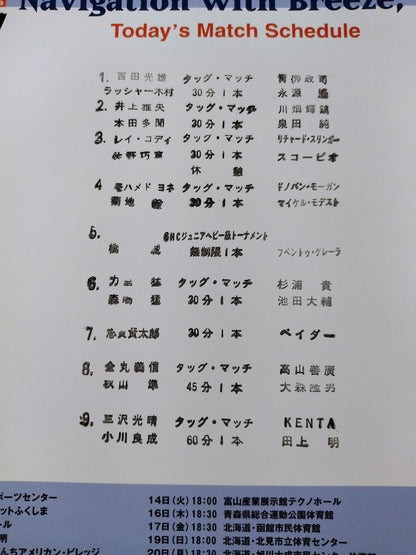 Navigation with Breeze,
Today's Match Schedule
1. 百田光雄 タッグ・マッチ 青柳政司
ラッシャー木村 30分1本 永源 遙
2. 井上雅央 タッグ・マッチ 川畑輝鎮
本田多聞 30分1本 泉田 純
3. レイ・コディ タッグ・マッチ リチャード・スリンガー
佐野巧真 30分1本 スコーピオ
休憩
4 モハメド ヨネ タッグ・マッチ ドノバン・モーガン
菊地 毅 30分1本 マイケル・モデスト
5. GHCジュニアヘビー級トーナメント
橋 誠 無制限1本 フベントゥ・ゲレーラ
6. 力皇 猛 タッグ・マッチ 杉浦 貴
森嶋 猛 30分1本 池田大輔
7. 志賀賢太郎 30分1本 ベイダー
8. 金丸義信 タッグ・マッチ 高山善廣
秋山 準 45分1本 大森隆男
9. 三沢光晴 タッグ・マッチ KENTA
小川良成 60分1本 田上 明
ポーツセンター 14日(火)18:00 富山産業展示館テクノホール
ットふくしま 16日(木)18:30 青森県総合運動公園体育館
ール 17日(金)18:30 北海道・函館市民体育館
明 19日(日)18:00 北海道・北見市立体育センター
んちアメリカン・ビレッジ 20日(月)18:30 北海道・旭川大成市民センター体育館